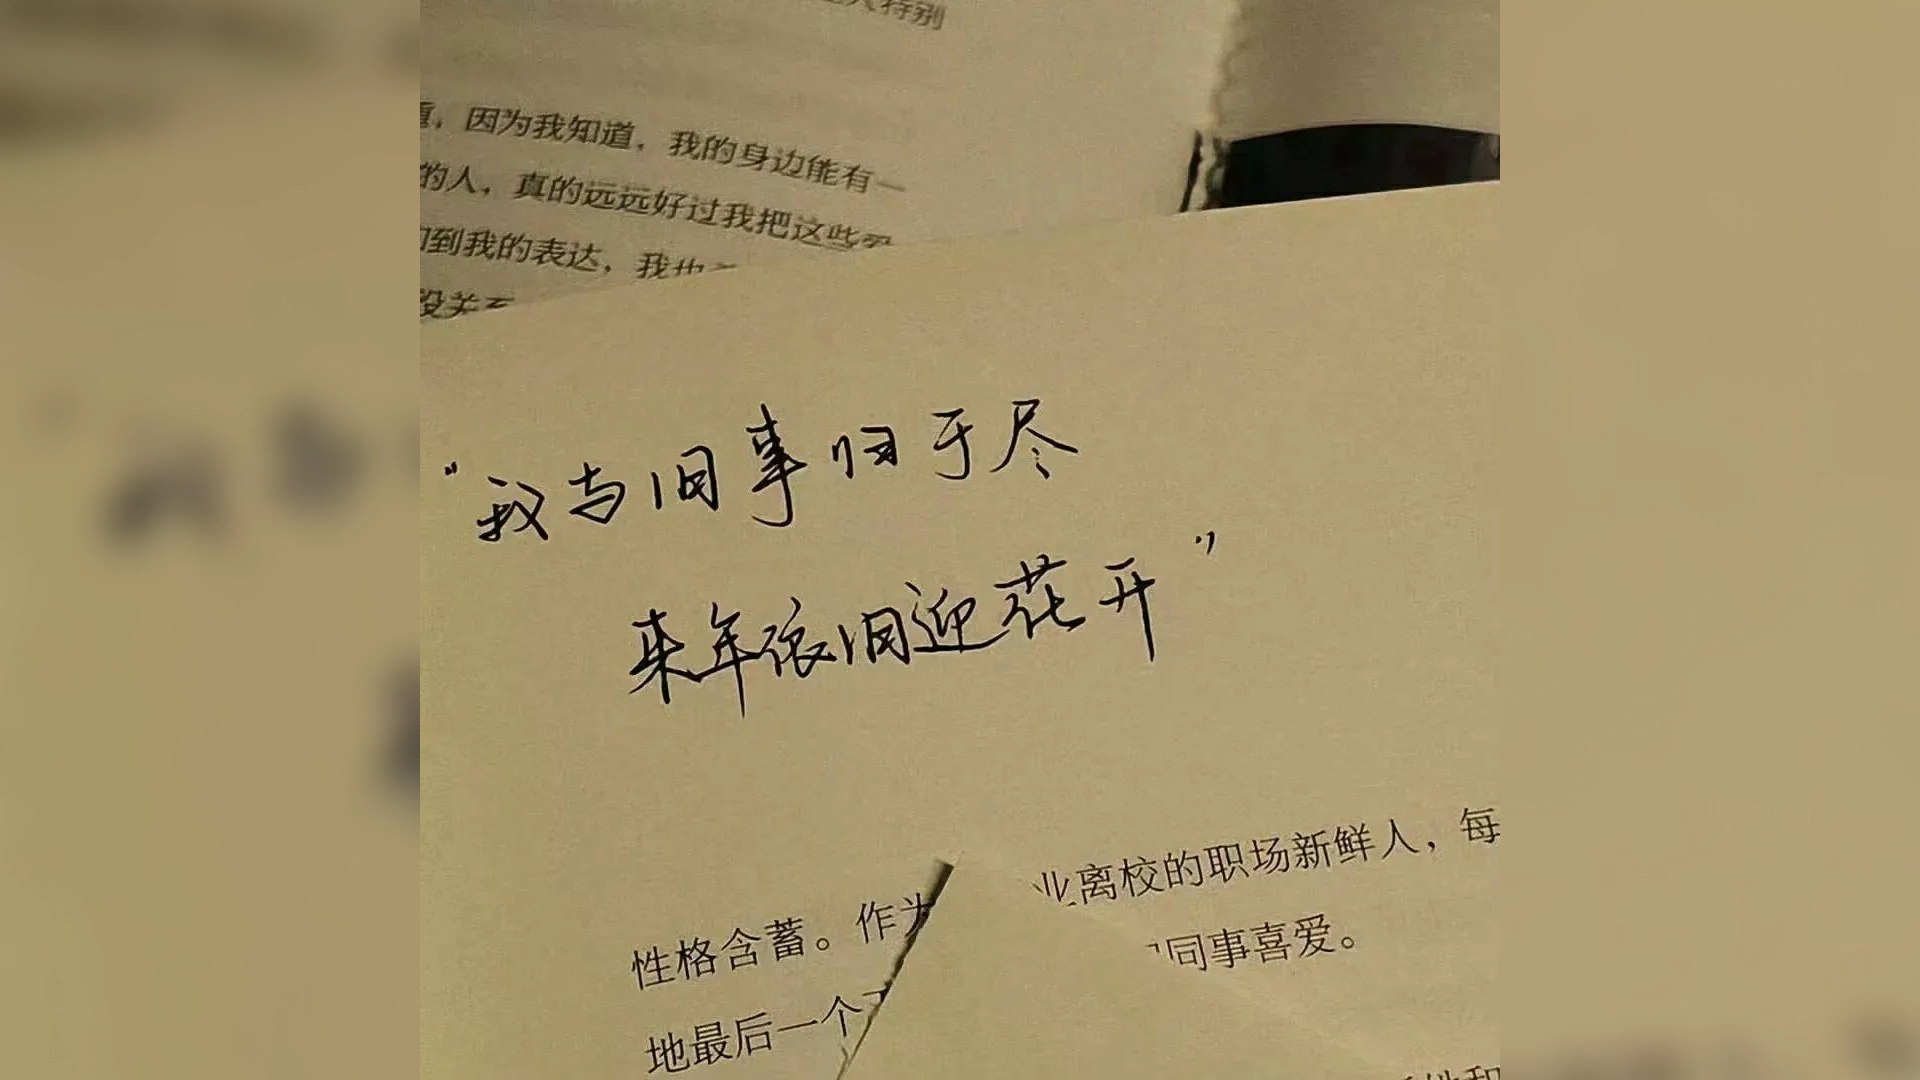 特别
，因为我知道，我的身边能有一
的人，真的远远好过我把这些
到我的表达，我也
没关
“我与旧事归于尽
来年依旧迎花开”
业离校的职场新鲜人，每
性格含蓄。作为
同事喜爱。
地最后一个